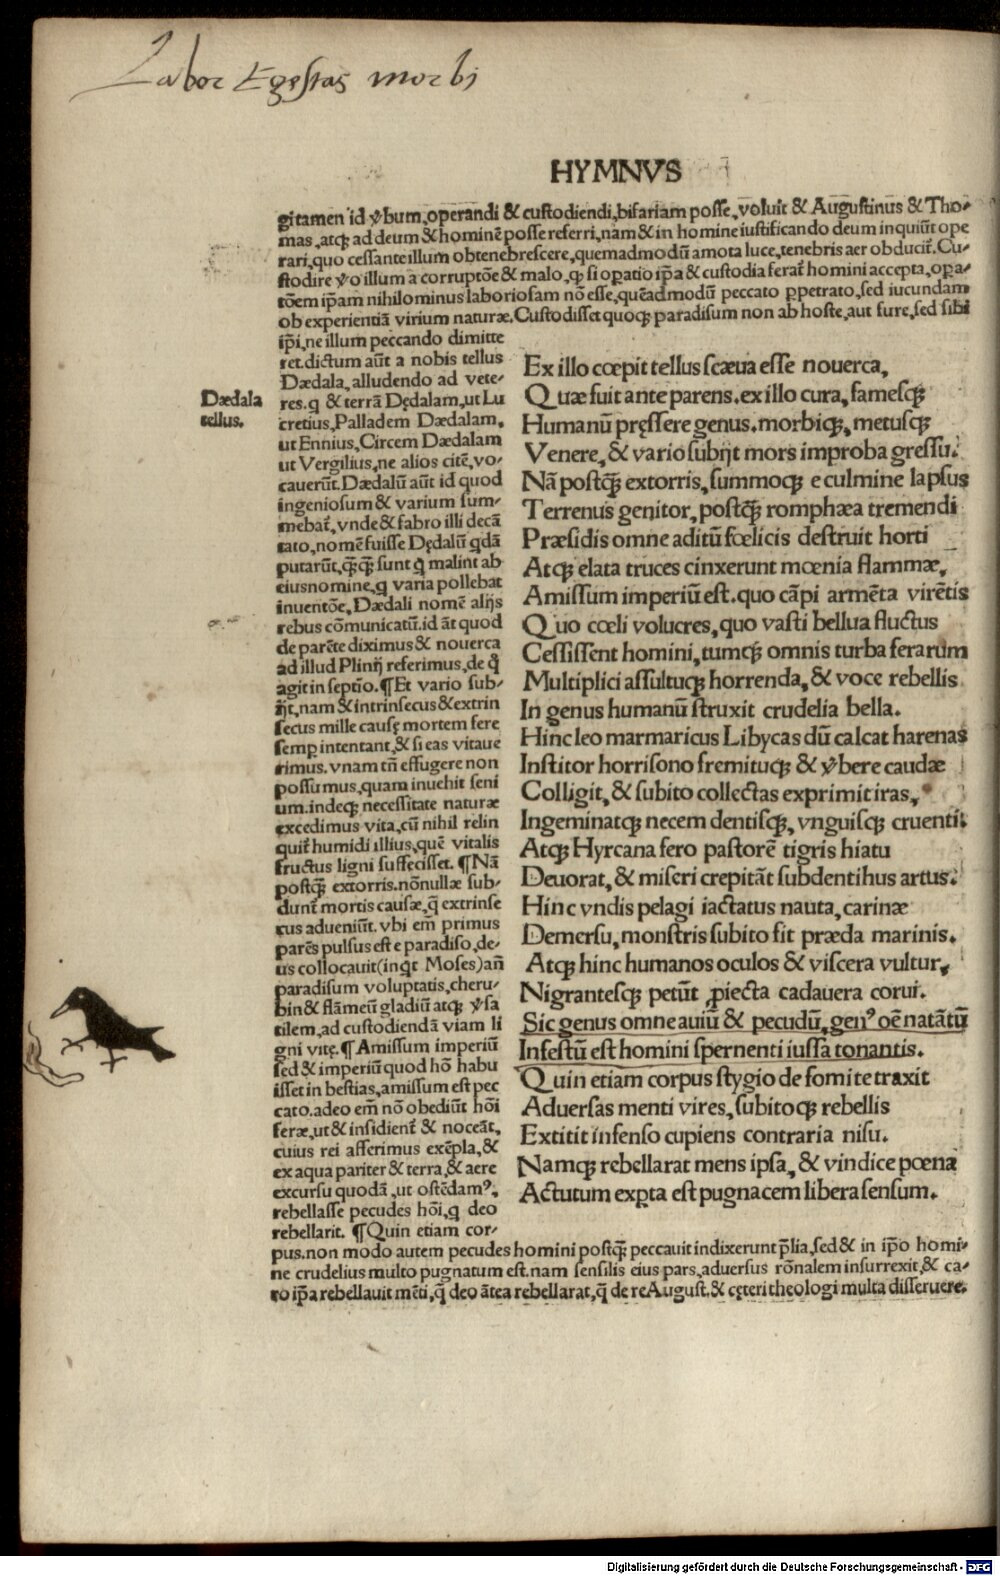 Labor Egestas morbi
HYMNVS
gitamen id ṽbum, operandi & custodiendi, bifariam posse, voluit & Augustinus & Tho-
mas, atq; ad deum & hominē posse referri, nam & in homine iustificando deum inquiūt ope
rari, quo cessante illum obtenebrescere, quemadmodū amota luce, tenebris aer obducit̃. Cu-
stodire ṽo illum a corruptōe & malo, q; si oꝑatio ip̃a & custodia ferat̃ homini accepta, oꝑa-
tōem ip̃am nihilominus laboriosam nō esse, quēadmodū peccato ꝑpetrato, sed iucundam
ob experientiā virium naturæ. Custodisset quoq; paradisum non ab hoste, aut fure, sed sibi
ip̃i, ne illum peccando dimitte
ret. dictum aūt a nobis tellus
Dædala, alludendo ad vete-
res. q & terrā Dędalam, ut Lu
cretius, Palladem Dædalam,
ut Ennius, Circem Dædalam
ut Vergilius, ne alios citē, vo-
cauerūt. Dædalū aūt id quod
ingeniosum & varium sum-
mebat̃, vnde & fabro illi decā
tato, nomē fuisse Dędalū qdā
putarūt, q̃q̃ sunt q malint ab
eius nomine, q varia pollebat
inuentōe, Dædali nomē alijs
rebus cōmunicatū. id āt quod
de parēte diximus & nouerca
ad illud Plinij referimus, de q̃
agit in septīo. ¶ Et vario sub-
ijt, nam & intrinsecus & extrin
secus mille causę mortem fere
semꝑ intentant, & si eas vitaue
rimus. vnam tñ effugere non
possumus, quam inuehit seni
um. indeq; necessitate naturæ
excedimus vita, cū nihil relin
quit̃ humidi illius, quē vitalis
fructus ligni suffecisset. ¶ Nā
postq̃; extorris. nōnullæ sub-
dunt̃ mortis causæ, q̃ extrinse
cus adueniūt. vbi em̃ primus
parēs pulsus est e paradiso, de-
us collocauit (inq̃t Moses) añ
paradisum voluptatis, cheru-
bin & flāmeū gladiū atq; ṽsa
tilem, ad custodiendā viam li
gni vitę. ¶ Amissum imperiū
sed & imperiū quod hō habu
isset in bestias, amissum est pec
cato. adeo em̃ nō obediūt hōi
feræ, ut & insidient̃ & noceāt,
cuius rei afferimus exēpla, &
ex aqua pariter & terra, & aere
excursu quodā, ut ostēdamꝰ,
rebellasse pecudes hōi, q deo
rebellarit. ¶ Quin etiam cor-
Dædala
tellus.
Ex illo cœpit tellus scæua esse nouerca,
Quæ fuit ante parens. ex illo cura, famesq;
Humanū pręssere genus. morbiq;, metusq;
Venere, & vario subijt mors improba gressu.
Nā postq̃; extorris, summoq; e culmine lapsus
Terrenus genitor, postq̃; romphæa tremendi
Præsidis omne aditū fœlicis destruit horti
Atq; elata truces cinxerunt mœnia flammæ,
Amissum imperiū est. quo cāpi armēta virētis
Quo cœli volucres, quo vasti bellua fluctus
Cessissent homini, tumq; omnis turba ferarum
Multiplici assultuq; horrenda, & voce rebellis
In genus humanū struxit crudelia bella.
Hinc leo marmaricus Libycas dū calcat harenas
Institor horrisono fremituq; & ṽbere caudæ
Colligit, & subito collectas exprimit iras,
Ingeminatq; necem dentisq;, vnguisq; cruenti.
Atq; Hyrcana fero pastorē tigris hiatu
Deuorat, & miseri crepitāt sub dentibus artus.
Hinc vndis pelagi iactatus nauta, carinæ
Demersu, monstris subito fit præda marinis.
Atq; hinc humanos oculos & viscera vultur,
Nigrantesq; petūt ꝓiecta cadauera corui.
Sic genus omne auiū & pecudū, genꝰ oē natātū
Infestū est homini spernenti iussa tonantis.
Quin etiam corpus stygio de fomite traxit
Aduersas menti vires, subitoq; rebellis
Extitit infenso cupiens contraria nisu.
Namq; rebellarat mens ipsa, & vindice pœna
Actutum expꝑta est pugnacem libera sensum.
pus. non modo autem pecudes homini postq̃; peccauit indixerunt p̃lia, sed & in ip̃o homi-
ne crudelius multo pugnatum est. nam sensilis eius pars, aduersus rōnalem insurrexit, & ca-
ro ip̃a rebellauit mēti, q̃ deo ātea rebellarat, q̃ de re August. & cęteri theologi multa disseruere.
Digitalisierung gefördert durch die Deutsche Forschungsgemeinschaft - DFG